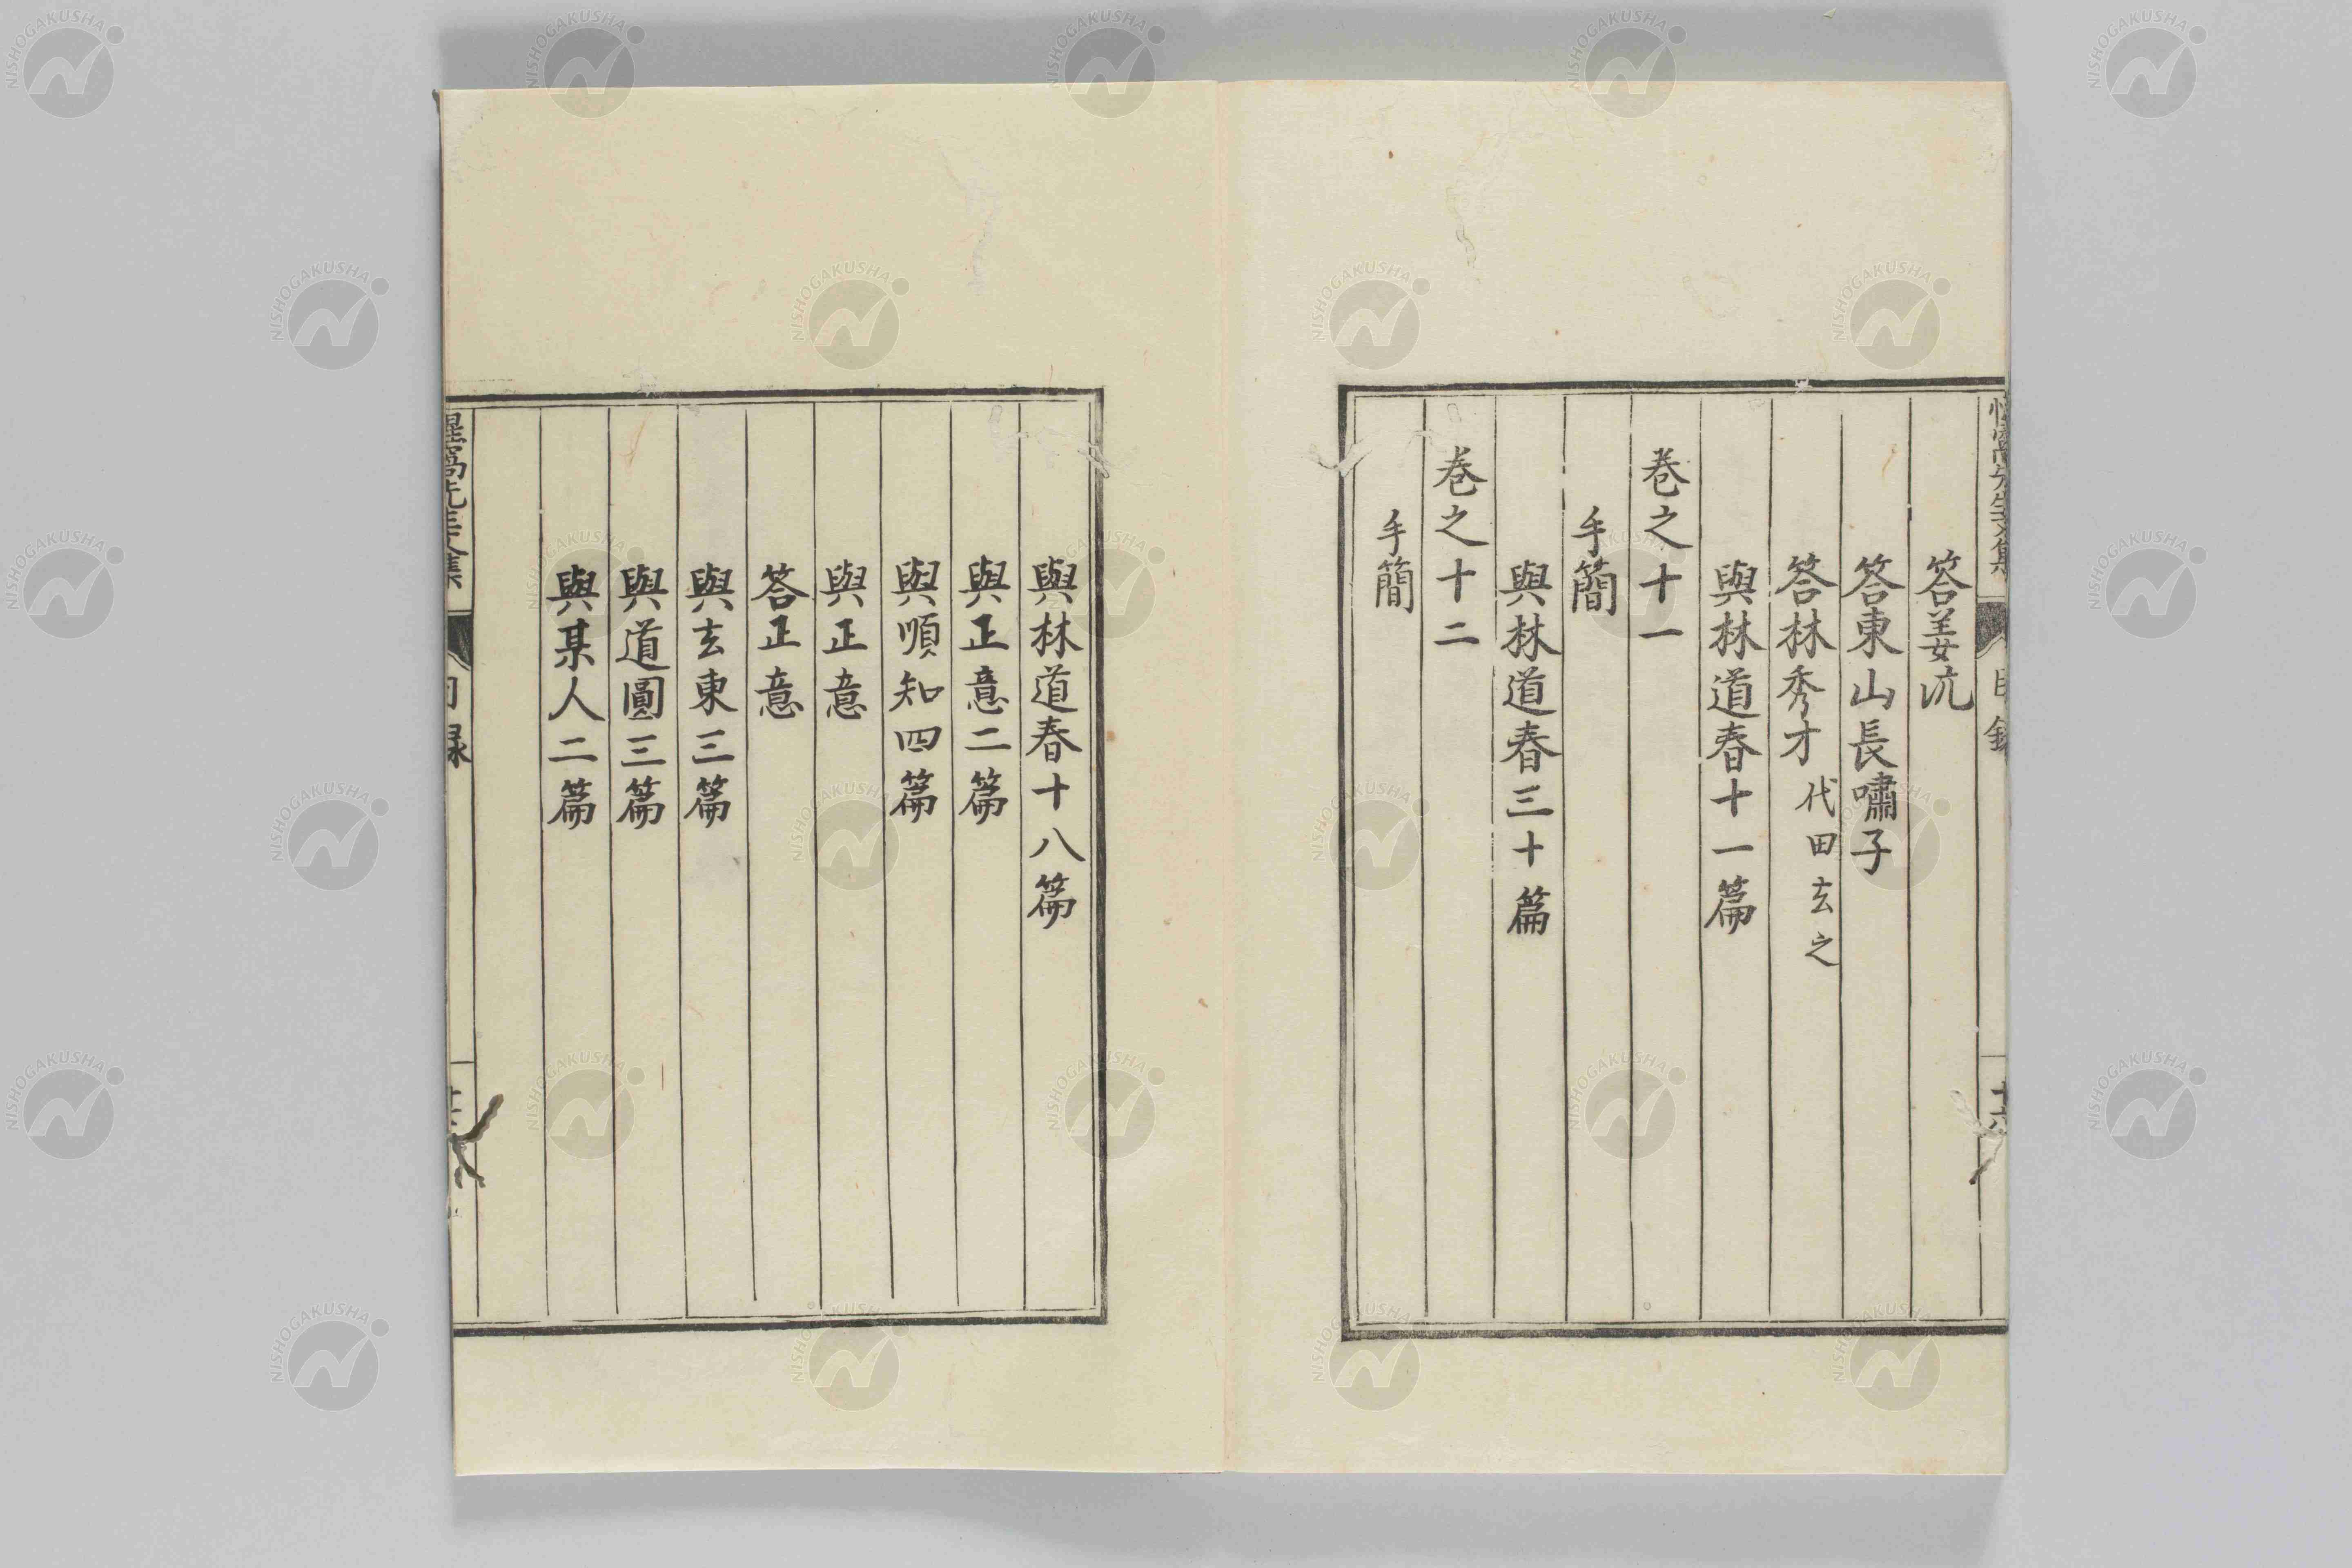 答姜沆
答東山長嘯子
答林秀才 代田玄之
與林道春十一篇
巻之十一
手簡
與林道春三十篇
巻之十二
手簡
與林道春十八篇
與正意二篇
與順知四篇
與正意
答正意
與玄東三篇
與道圓三篇
與某人二篇
惺窩先生文集
目録
NISHOGAKUSHA